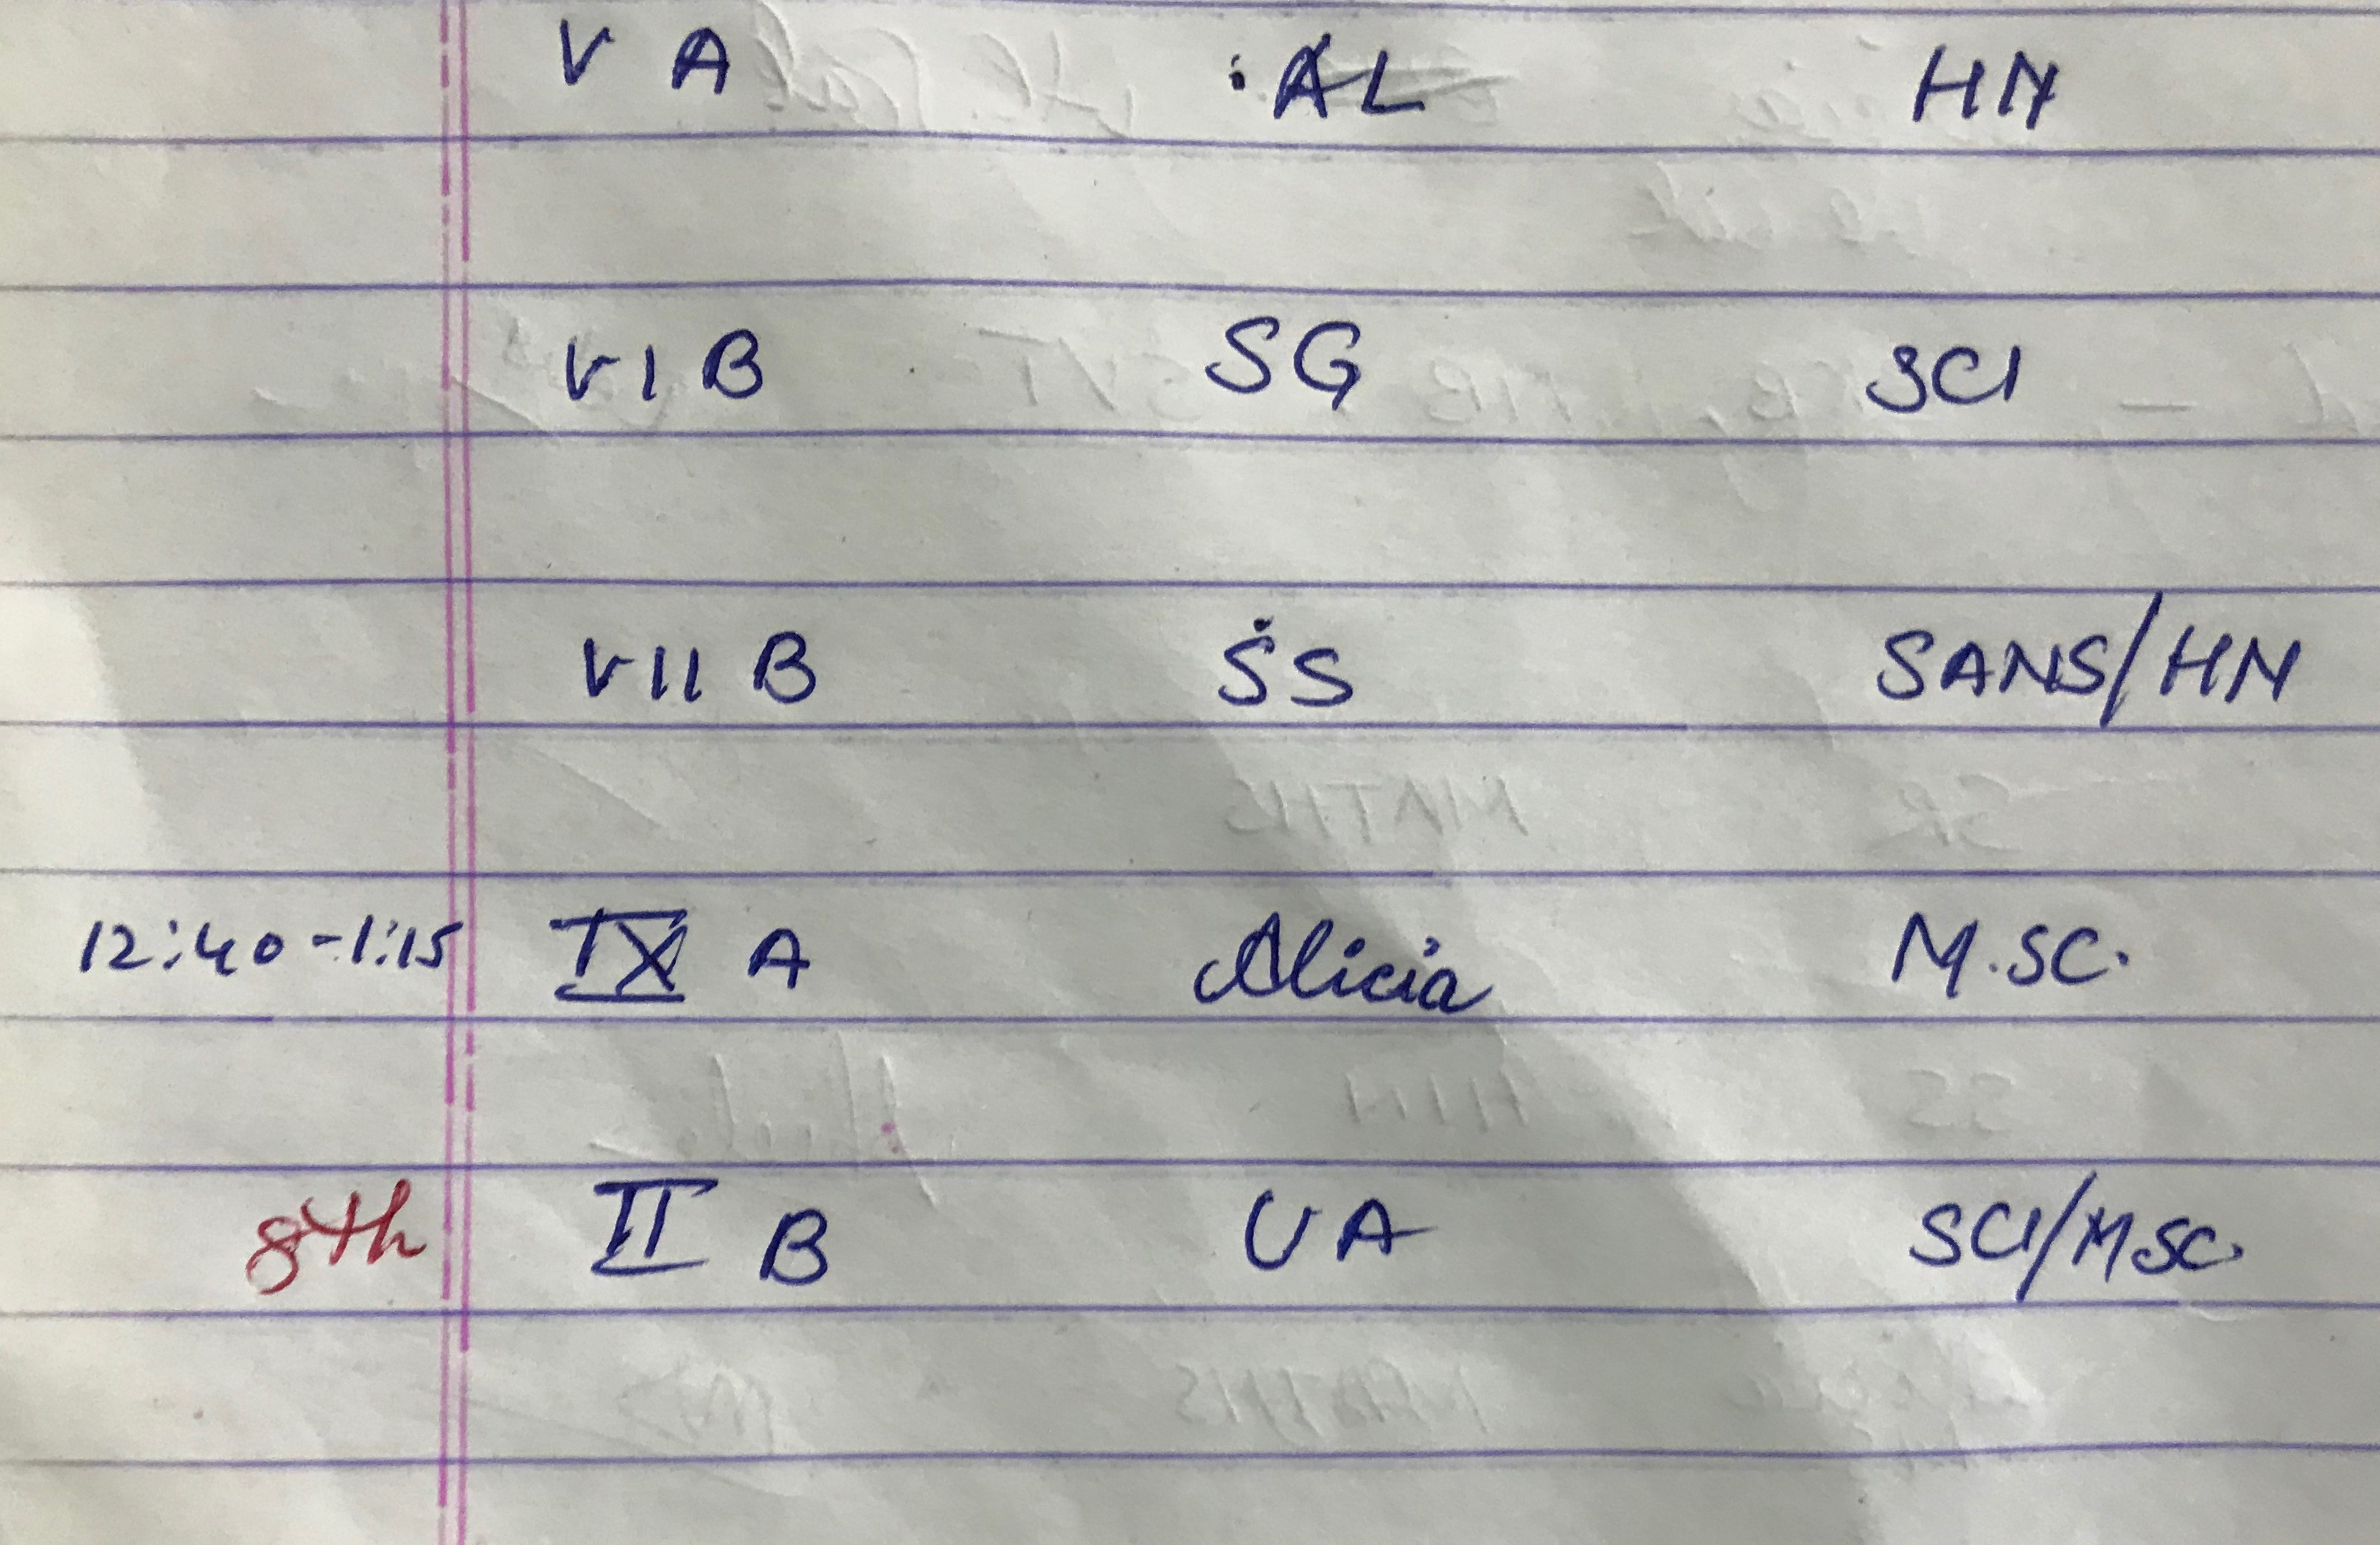 V A AL HN
VI B SG SCI
VII B SS SANS/HN
12:40-1:15 IX A Alicia M.SC.
8th II B UA SCI/MSC.